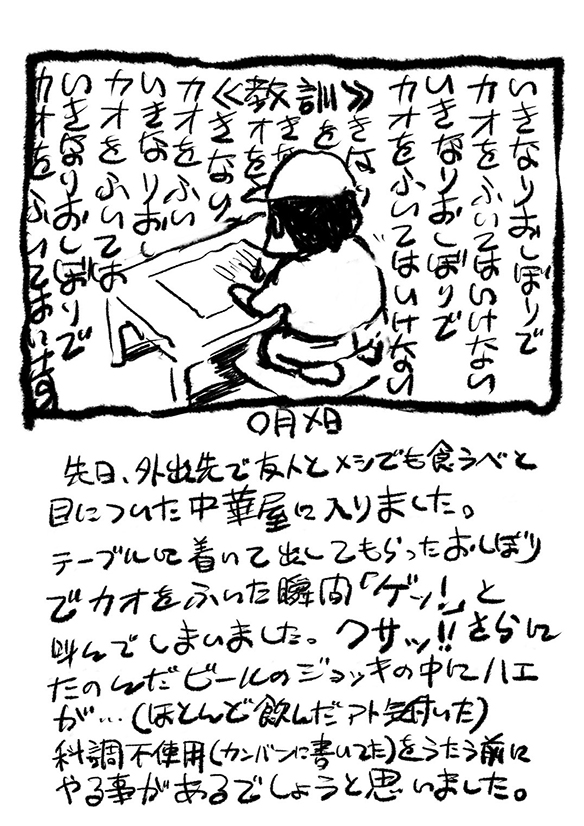 《教訓》
いきなりおしぼりで
カオをふいてはいけない
いきなりおしぼりで
カオをふいてはいけない
きなり
を
オを
きなり
カオをふい
いきなりおし
カオをふいては
いきなりおしぼりで
カオをふいてはいけない
〇月×日
先日、外出先で友人とメシでも食うべと
目についた中華屋に入りました。
テーブルに着いて出してもらったおしぼり
でカオをふいた瞬間「ゲッ!」と
叫んでしまいました。クサッ!!さらに
たのんだビールのジョッキの中にハエ
が…(ほとんど飲んだアト気付いた)
科調不使用(カンバンに書いてた)をうたう前に
やる事があるでしょうと思いました。